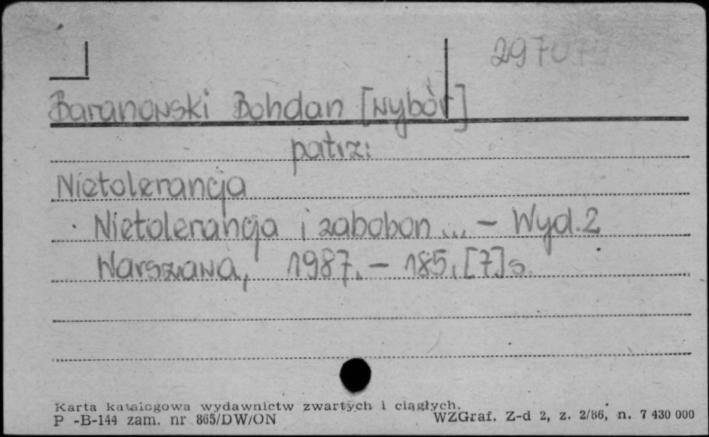 Baranowski Bohdan [wybór]
patrz:
Nietolerancja
Nietolerancja i zabobon... - Wyd. 2
Warszawa, 1987. - 185, [7] s.
Karta katalogowa wydawnictw zwartych i ciągłych.
P -B-144 zam. nr 865/DW/ON WZGraf. Z-d 2, z. 2/86, n. 7 430 000